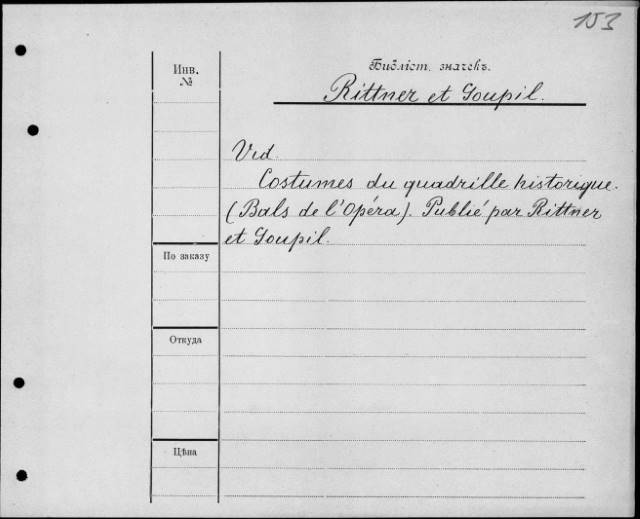 153
Инв.
№
Библіот. значекъ.
Rittner et Goupil.
Vid.
Costumes du quadrille historique.
(Bals de l'Opéra). Publié par Rittner
et Goupil.
По заказу
Откуда
Цѣна